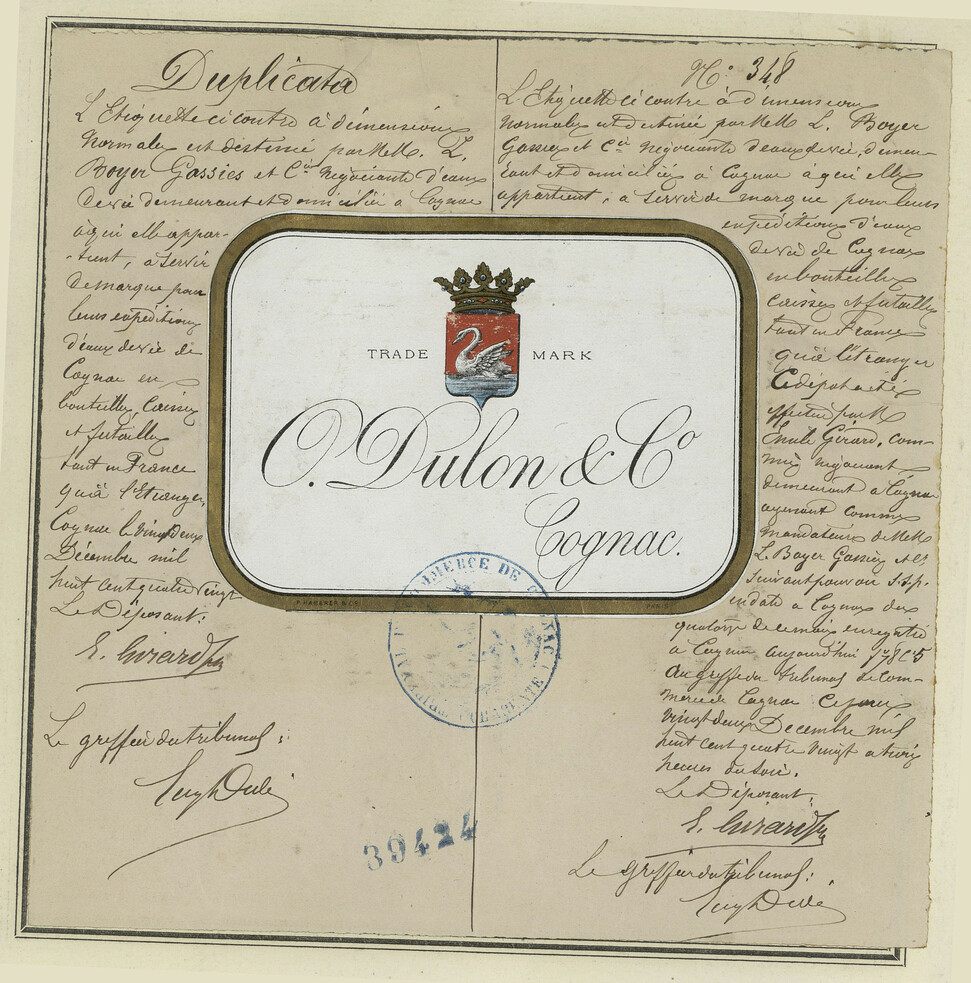 Duplicata
L'Etiquette ci contre à dimensions
Normales est destinée par MM. L.
Boyer Gassies et Cie Négociants d'eaux
de vie demeurant et domiciliés à Cognac
à qui elle appar-
-tient, à servir
de marque pour
leurs expéditions
d'eaux de vie de
Cognac en
bouteilles, Caisses
et futailles
tant en France
qu'à l'Etranger,
Cognac le vingt deux
Décembre mil
huit cent quatre vingt
Le Déposant:
E. Girard
Le greffier du tribunal:
No. 348
L'Etiquette ci contre à dimensions
Normales est destinée par MM L. Boyer
Gassies et Cie Négociants d'eaux de vie, demeu-
rant et domiciliés à Cognac à qui elle
appartient, à servir de marque pour leurs
expéditions d'eaux
de vie de Cognac
en bouteilles
caisses et futailles
tant en France
qu'à l'étranger
Ce dépot a été
effectué par M
Emile Gérard, com-
mis négociant
demeurant à Cognac
agissant comme
mandataire de MM
L. Boyer Gassies et Cie
suivant pouvoir s.s.p.
en date à Cognac du
quatorze de ce mois enregistré
à Cognac aujourd'hui
Au greffe du tribunal de Com-
merce de Cognac Ce jour
vingt deux Décembre mil
huit cent quatre vingt à trois
heures du soir.
Le Déposant:
E. Girard
Le greffier du tribunal:
TRADE MARK
O. Dulon & Co
Cognac.
PARIS
COMMERCE DE COGNAC
39424